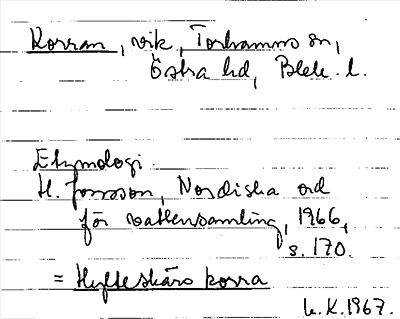 Korran, vik, Torhamns sn,
Östra hd, Blek. l.
Etymologi
H. Jonsson, Nordiska ord
för vattensamling, 1966,
s. 170.
= Hylteskärs korra
K.1967.